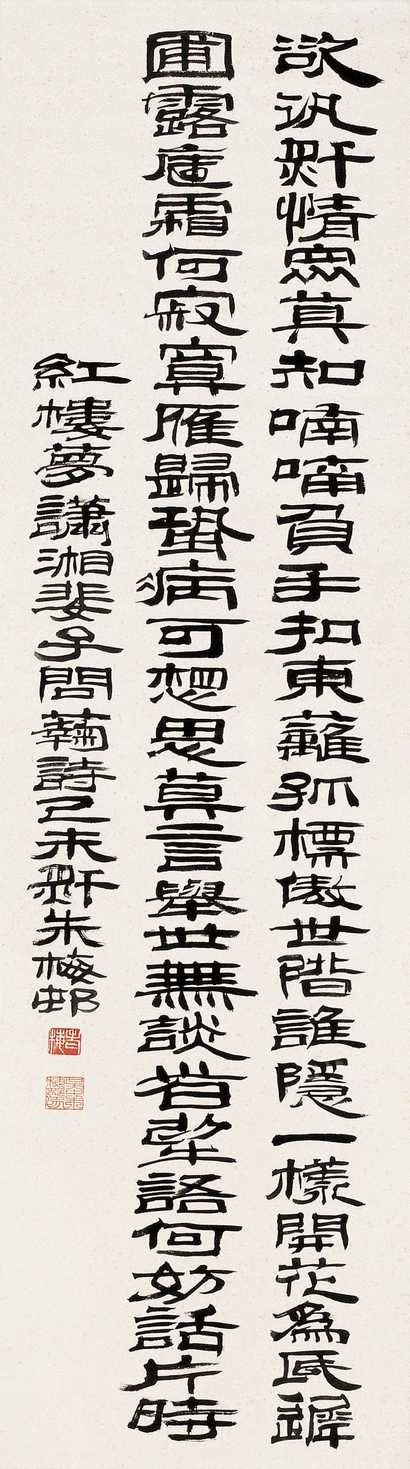 欲訊秋情眾莫知喃喃負手扣東蘺孤標傲世階誰隱一樣開花為底遲
圃露庭霜何寂寞雁歸蛩病可想思莫言舉世無談者解語何妨話片時
紅樓夢瀟湘婓子問蘜詩己未秋朱梅邨